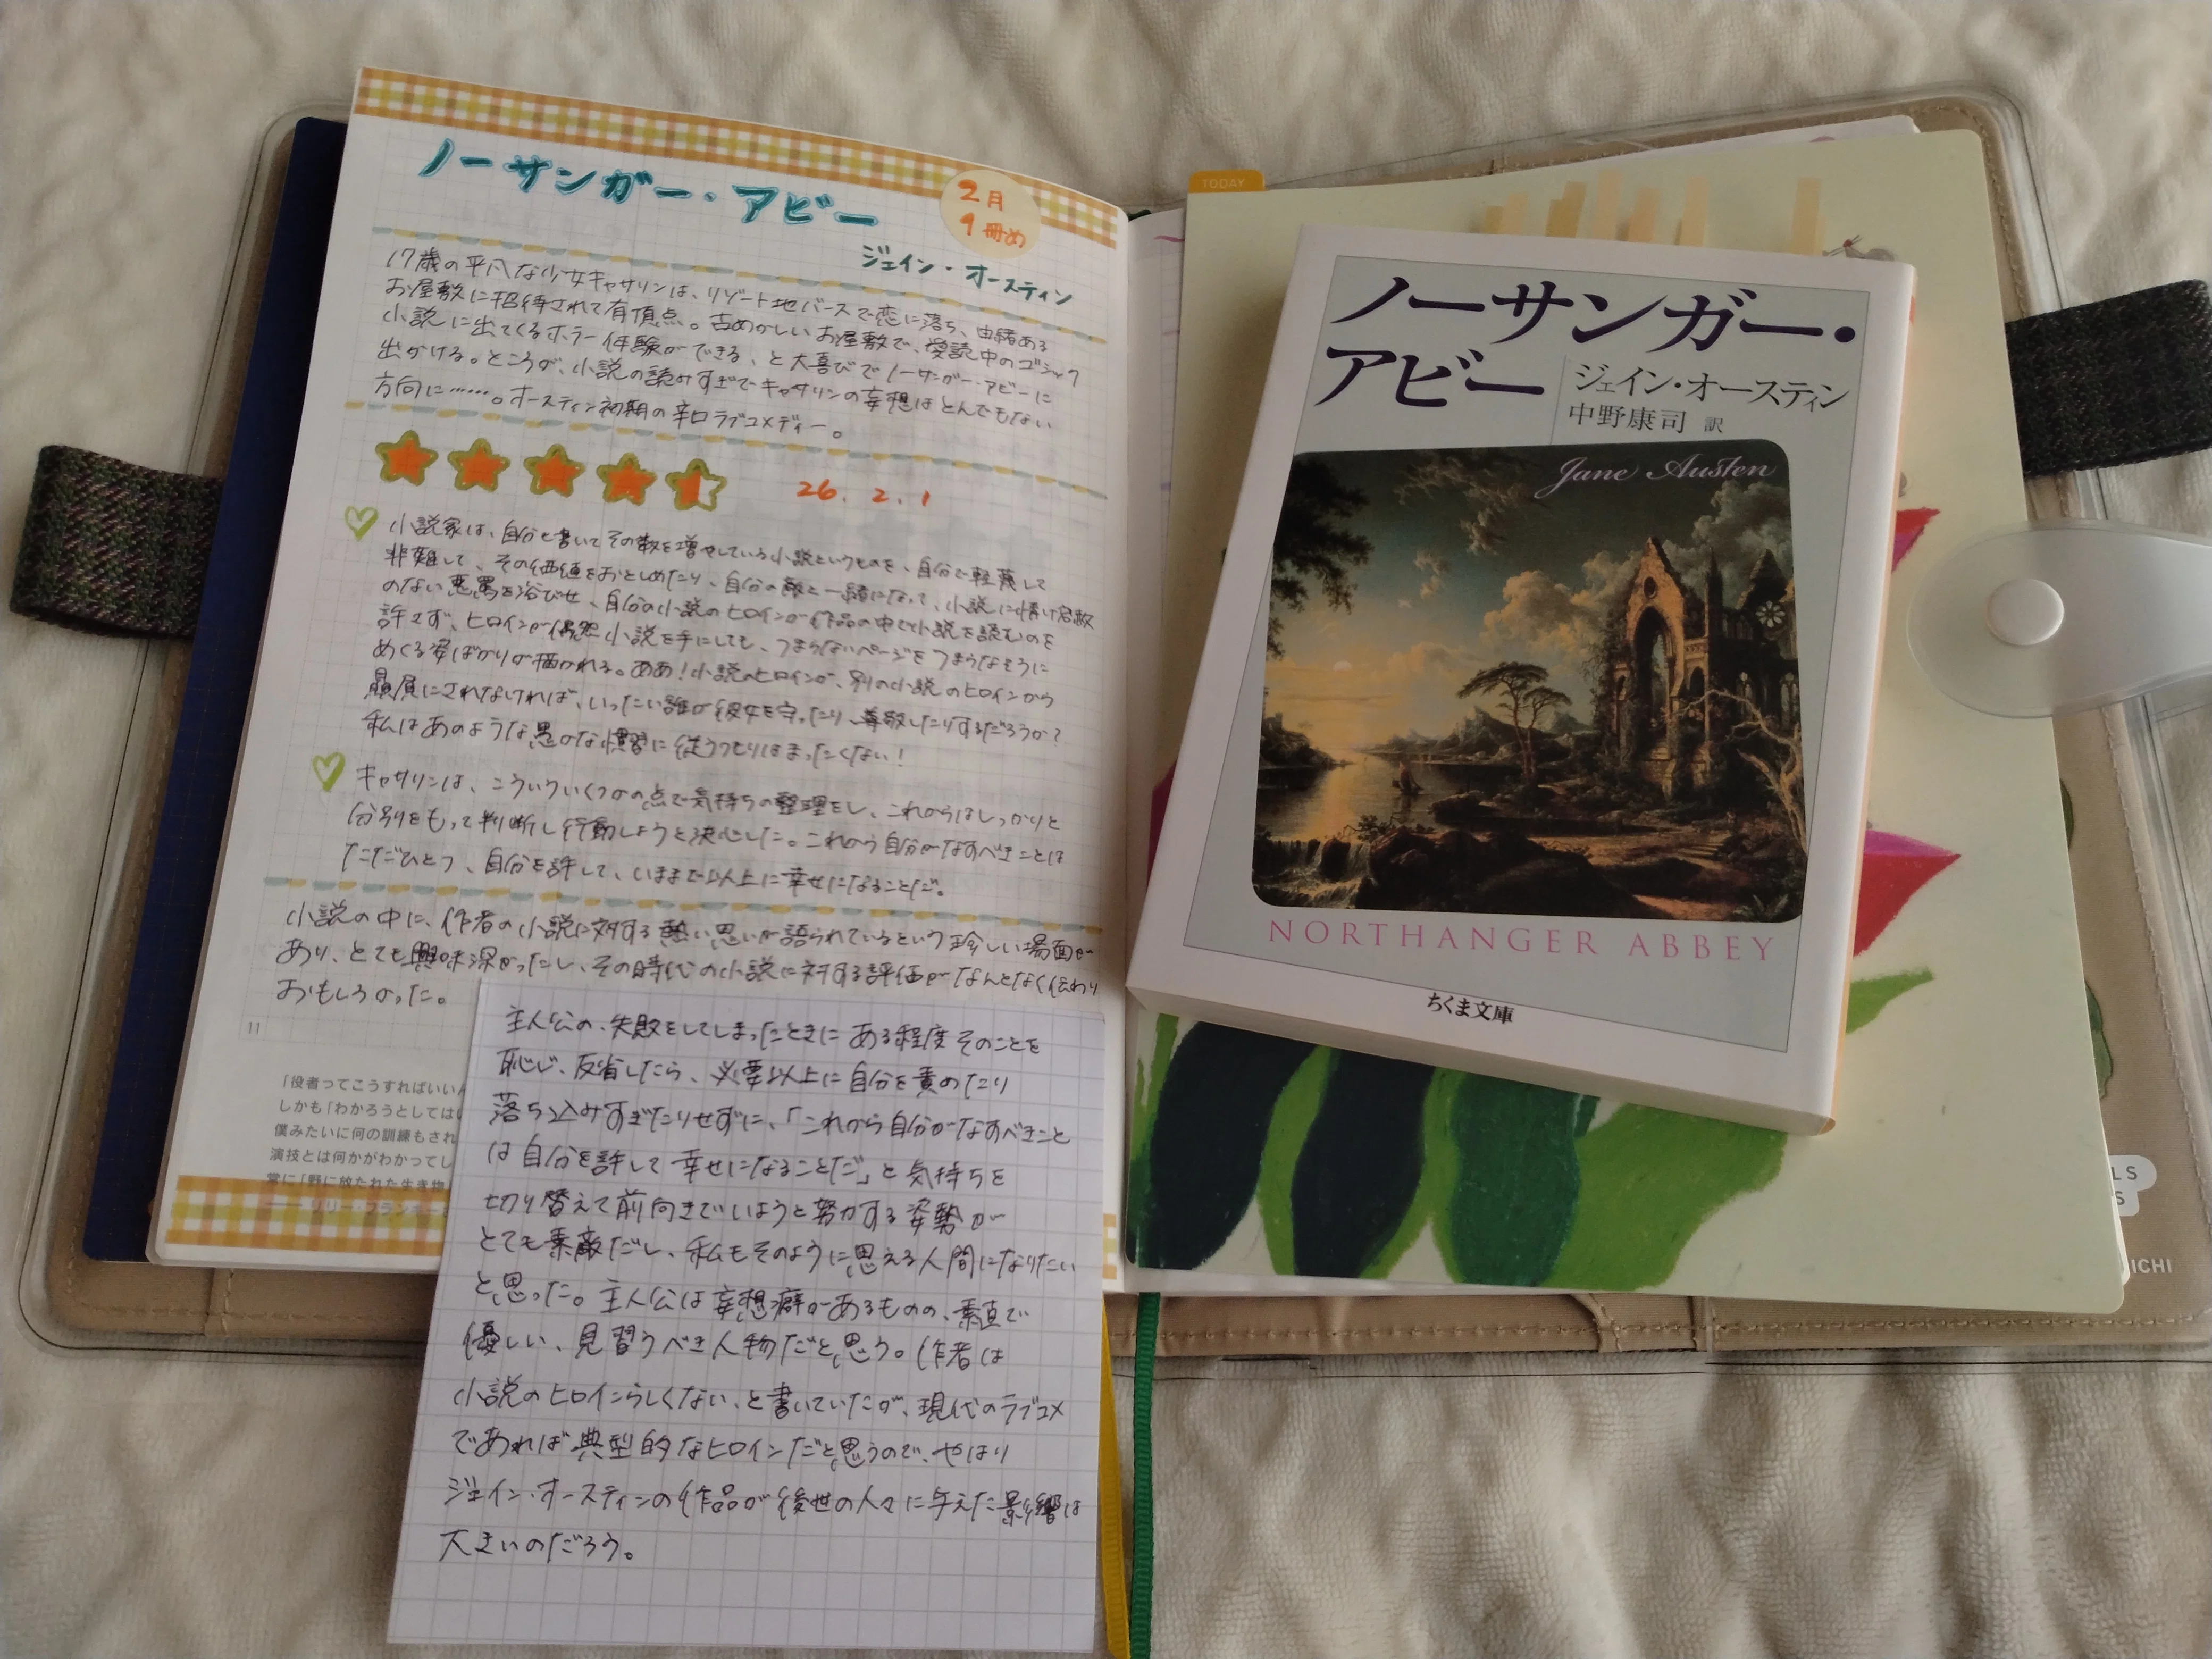 ノーサンガー・アビー
2月
1冊め
ジェイン・オースティン
17歳の平凡な少女キャサリンは、リゾート地バースで恋に落ち、由緒ある
お屋敷に招待されて有頂点。古めかしいお屋敷で、愛読中のゴシック
小説に出てくるホラー体験ができる、と大喜びでノーサンガー・アビーに
出かける。ところが、小説の読みすぎでキャサリンの妄想はとんでもない
方向に……。オースティン初期の辛口ラブコメディー。
26.2.1
小説家は、自分も書いてその数を増やしている小説というものを、自分で軽蔑して
非難して、その価値をおとしめたり、自分の敵と一緒になって、小説に情け容赦
のない悪罵を浴びせ、自分の小説のヒロインが作品の中で小説を読むのを
許さず、ヒロインが偶然小説を手にしても、つまらないページをつまらなそうに
めくる姿ばかりが描かれる。ああ!小説のヒロインが、別の小説のヒロインから
贔屓にされなければ、いったい誰が彼女を守ったり、尊敬したりするだろうか?
私はあのような愚かな慣習に従うつもりはまったくない!
キャサリンは、こういういくつかの点で気持ちの整理をし、これからはしっかりと
分別をもって判断し行動しようと決心した。これから自分がなすべきことは
ただひとつ、自分を許して、いままで以上に幸せになることだ。
小説の中に、作者の小説に対する熱い思いが語られているという珍しい場面が
あり、とても興味深かったし、その時代の小説に対する評価がなんとなく伝わり
おもしろかった。
11
「役者ってこうすればいい
しかも「わかろうとしては
僕みたいに何の訓練もされ
演技とは何かがわかってし
常に「野に放たれた生き物
—— リリー・フランキー
主人公の、失敗をしてしまったときにある程度そのことを
恥じ、反省したら、必要以上に自分を責めたり
落ち込みすぎたりせずに、「これから自分がなすべきこと
は自分を許して幸せになることだ」と気持ちを
切り替えて前向きでいようと努力する姿勢が
とても素敵だし、私もそのように思える人間になりたい
と思った。主人公は妄想癖があるものの、素直で
優しい、見習うべき人物だと思う。(作者は
小説のヒロインらしくない、と書いていたが、現代のラブコメ
であれば典型的なヒロインだと思うので、やはり
ジェイン・オースティンの作品が後世の人々に与えた影響は
大きいのだろう。
TODAY
ノーサンガー・
アビー
ジェイン・オースティン
中野康司 訳
Jane Austen
NORTHANGER ABBEY
ちくま文庫
LS
S
ICHI